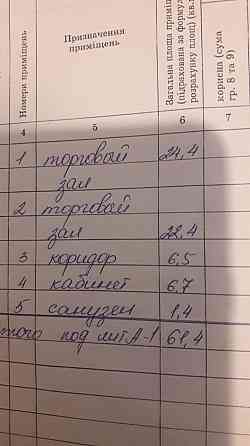 Номери приміщень
Призначення
приміщень
Загальна площа приміщ
(підрахована за формул
розрахунку площ) (кв.
корисна (сума
гр. 8 та 9)
4 5 6 7
1 торговой 24,4
зал
2 торговой
зал 22,4
3 коридор 6,5
4 кабинет 6,7
5 санузел 1,4
того под лит А-1 61,4